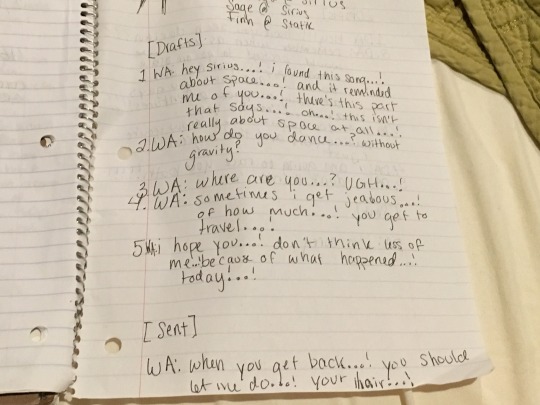 Sage @ Sirius
Finh @ Static
[Drafts]
1 WA: hey sirius...! i found this song...!
about space...! and it reminded
me of you...! there's this part
that says...! oh...! this isn't
really about space at all...!
2. WA: how do you dance...? without
gravity?
3 WA: where are you...? UGH...!
4. WA: sometimes i get jealous...!
of how much...! you get to
travel....
5 WA: i hope you...! don't think less of
me...! because of what happened...!
today!...!
[Sent]
WA: when you get back...! you should
let me do...! your hair...!